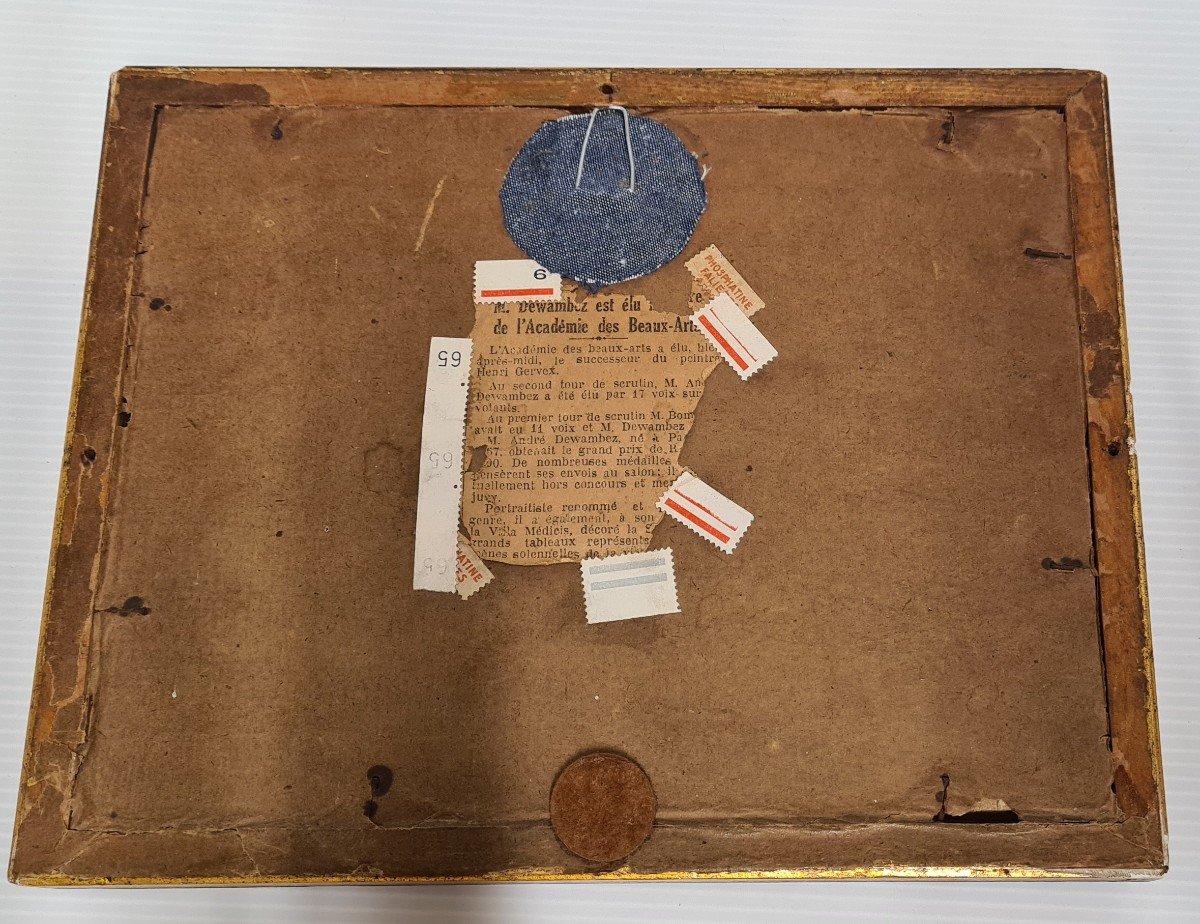 6
PHOSPHATINE
FALIE
M. Dewambez est élu
de l'Académie des Beaux-Arts
L'Académie des beaux-arts a élu, hier
après-midi, le successeur du peintre
Henri Gervex.
Au second tour de scrutin, M. An
Dewambez a été élu par 17 voix sur
votants.
Au premier tour de scrutin M. Bom
avait eu 11 voix et M. Dewambez
M. André Dewambez, né à Pa
67, obtenait le grand prix de R
00. De nombreuses médailles
pensèrent ses envois au salon; il
tuellement hors concours et mem
jury.
Portraitiste renommé et
genre, il a également, à son
la Villa Médicis, décoré la S
grands tableaux représents
cènes solennelles de la vi
65
65
65
ATINE
ES